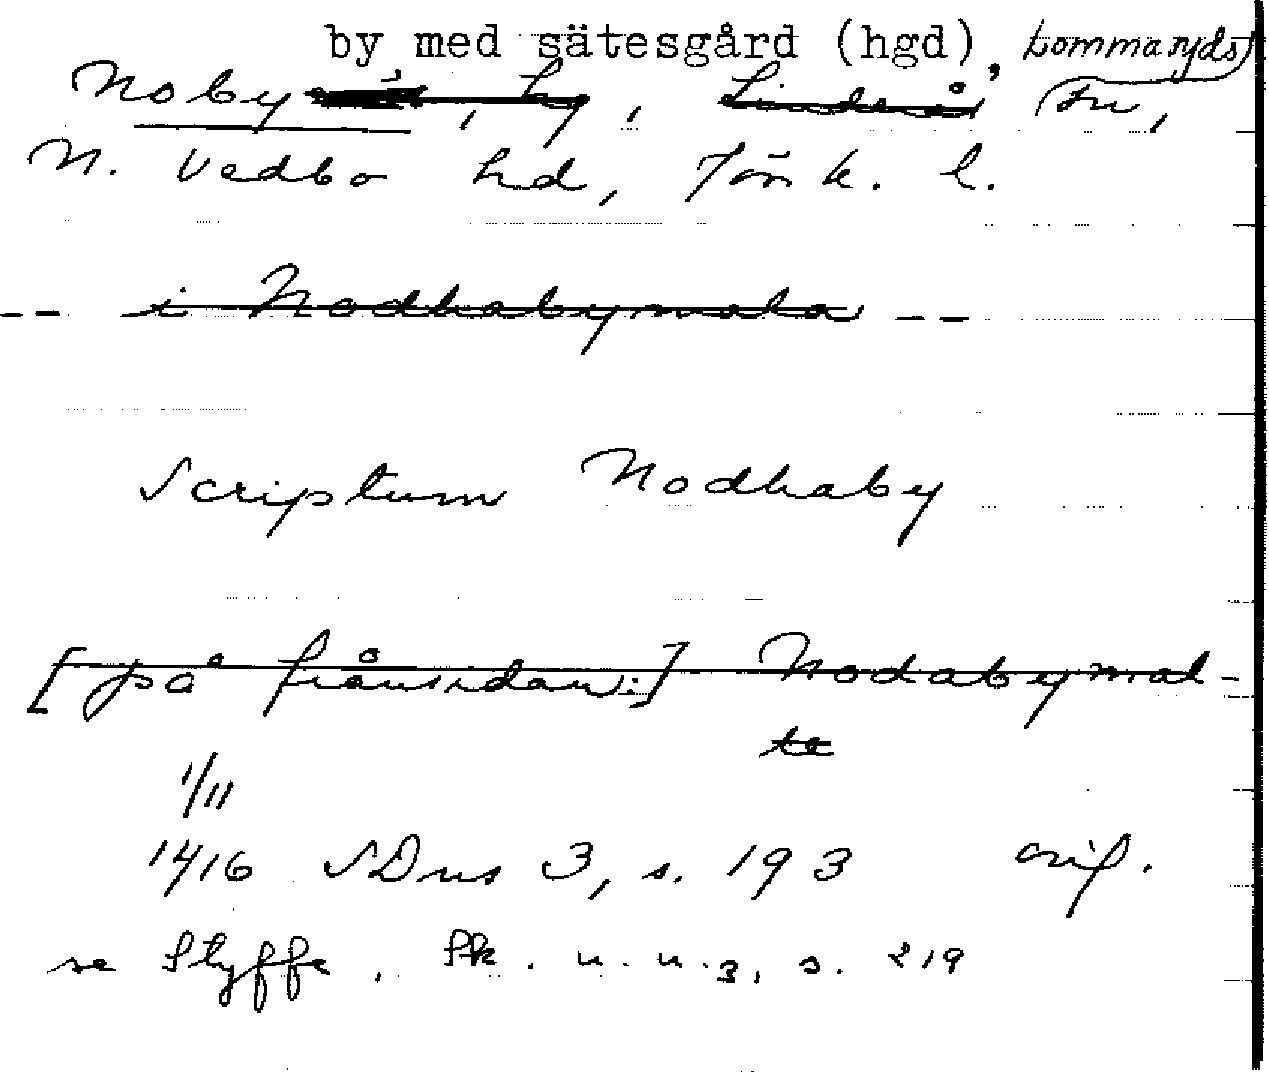 by med sätesgård (hgd), Lommaryds
Noby, by, Linderås sn,
N. Vedbo hd, Jönk. l.
-- i Nodhabymala --
Scriptum Nodhaby
[på frånsidan:] Nodabymal-
ta
1/11
1416 SDns 3, s. 193 orig.
se Styffe, Sk. u. u. 3, s. 219